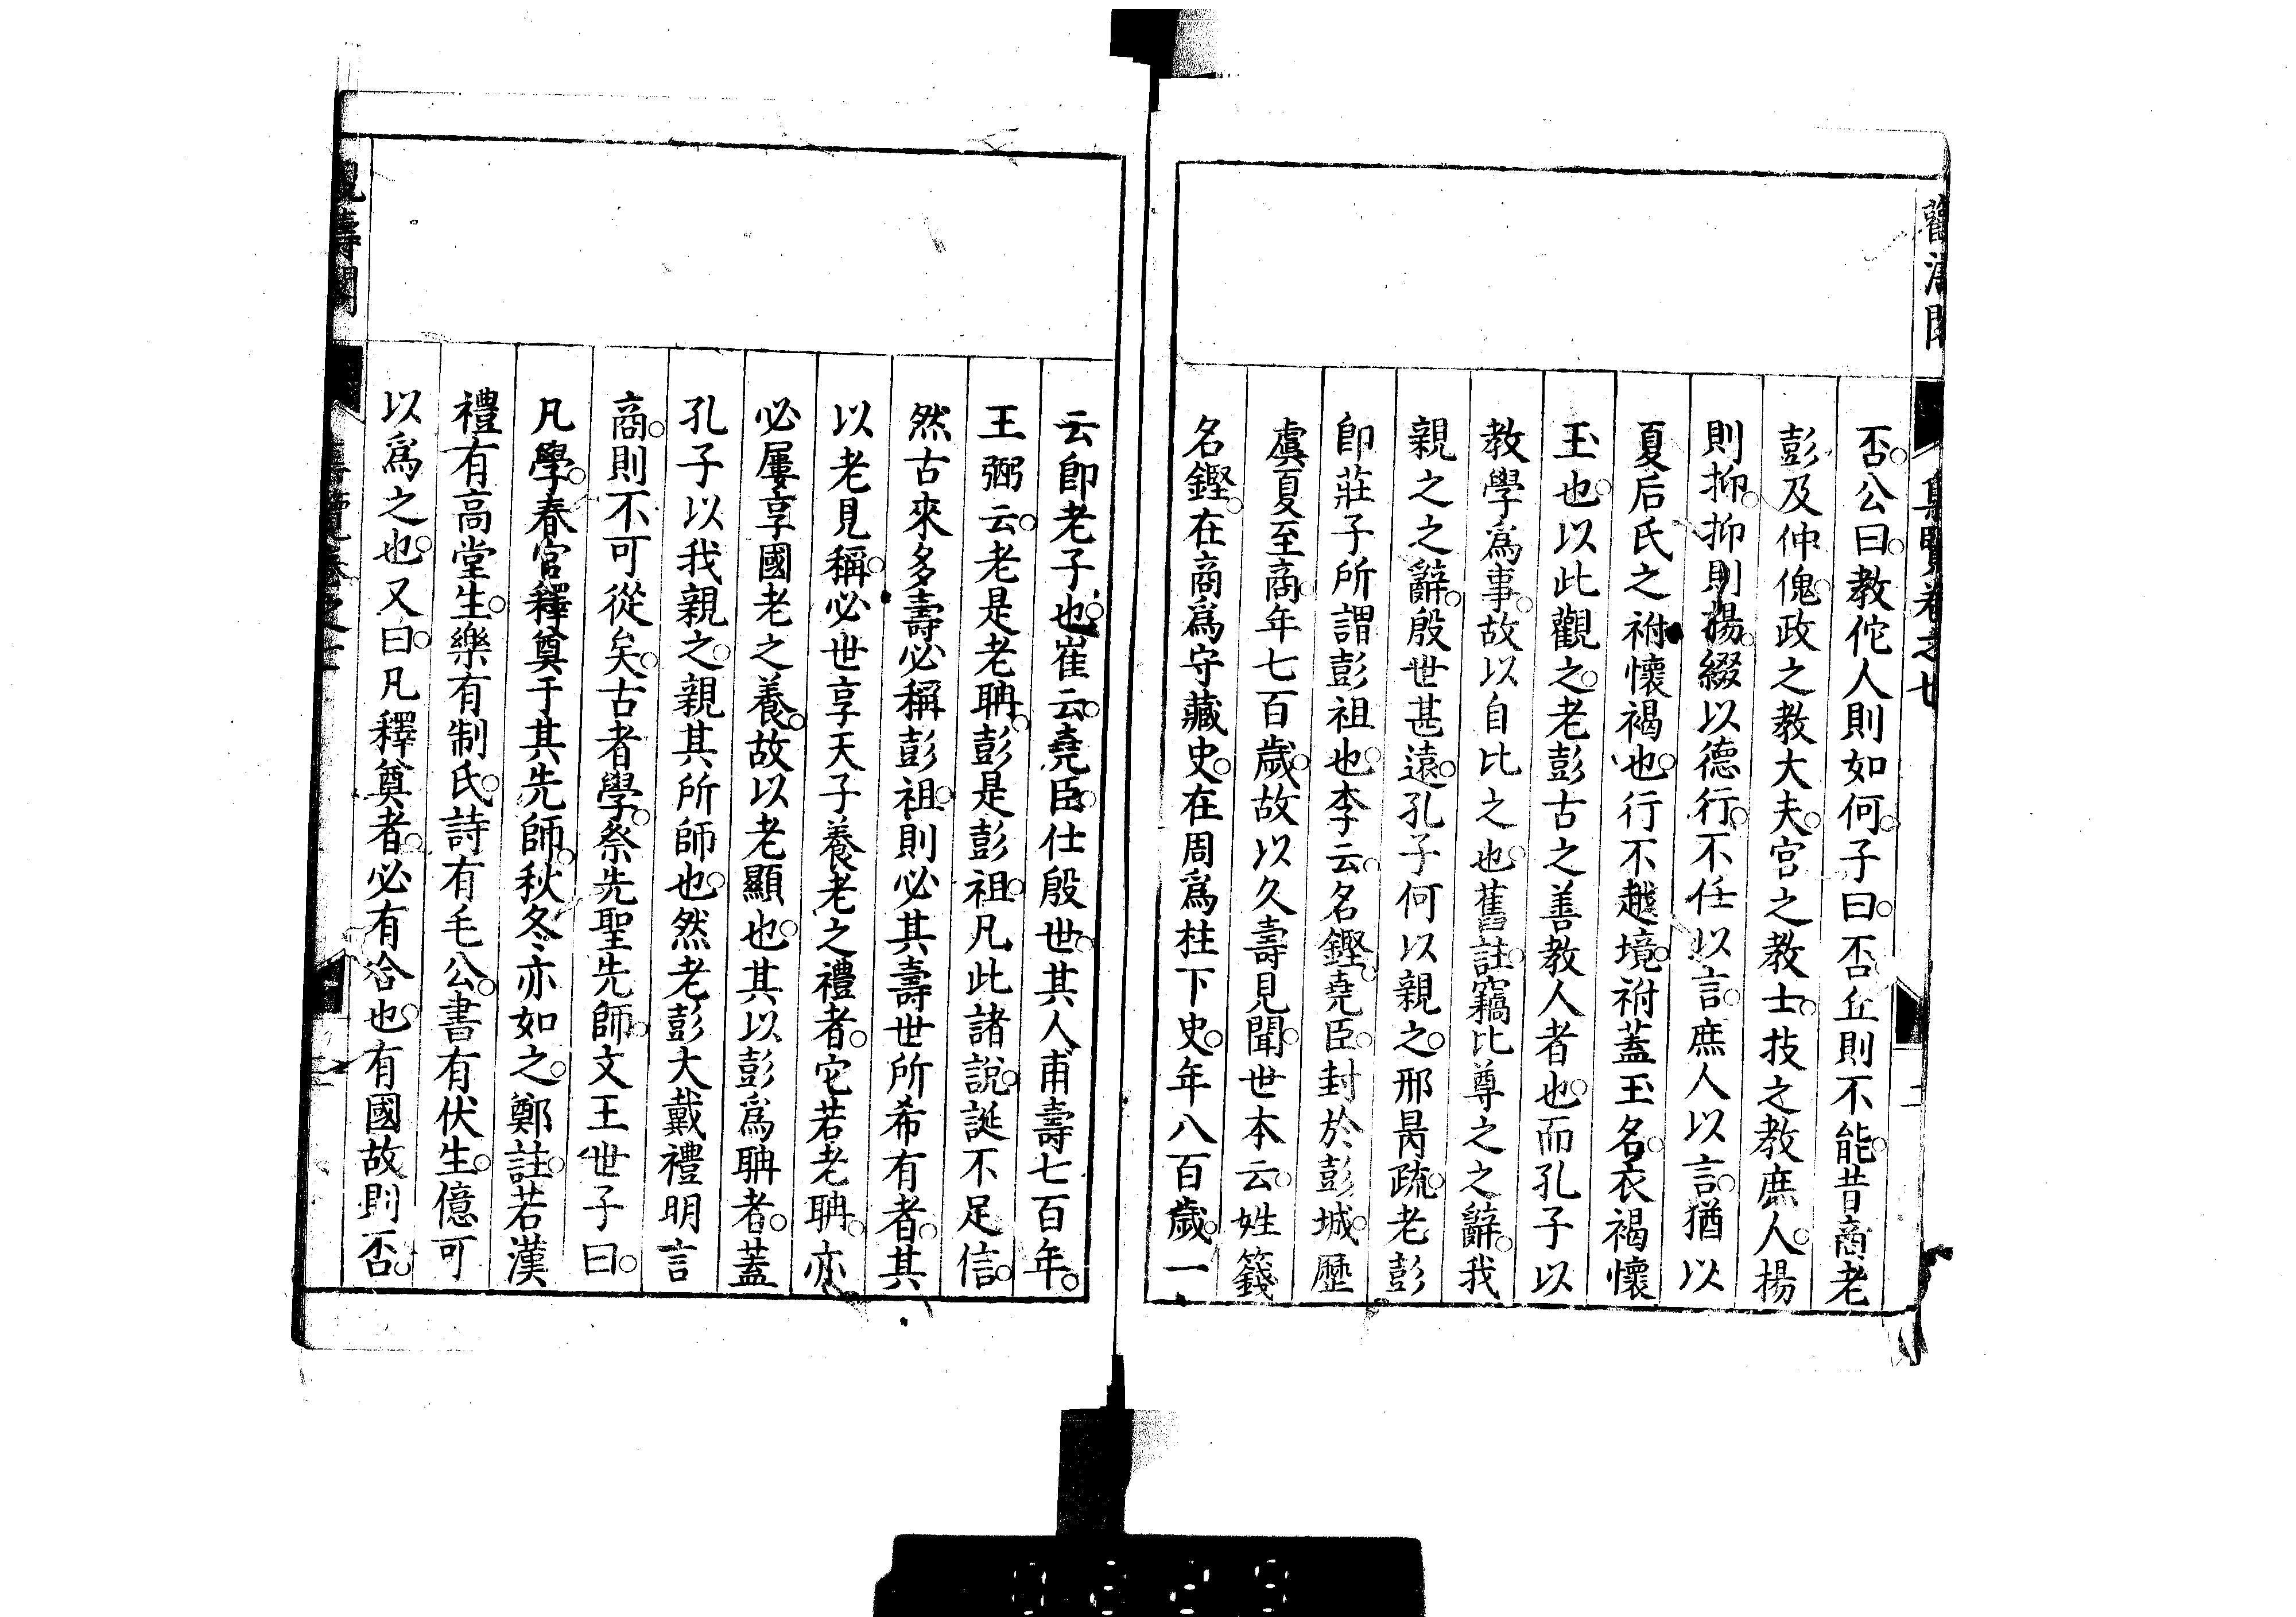 否。公曰。教佗人則如何。子曰。否。丘則不能。昔商老
彭及仲傀。政之教大夫。官之教士。技之教庶人。揚
則抑。抑則揚。綴以德行。不任以言。庶人以言。猶以
夏后氏之祔懷褐也。行不越境。祔蓋玉名。衣褐懷
玉也。以此觀之。老彭古之善教人者也。而孔子以
教學爲事。故以自比之也。舊註。竊比尊之之辭。我
親之之辭。殷世甚遠。孔子何以親之。邢昺疏。老彭
卽莊子所謂彭祖也。李云。名鏗。堯臣。封於彭城。歷
虞夏至商。年七百歲。故以久壽見聞。世本云。姓籛
名鏗。在商爲守藏史。在周爲柱下史。年八百歲。一
云卽老子也。崔云。堯臣。仕殷世。其人甫壽七百年。
王弼云。老是老聃。彭是彭祖。凡此諸說。誕不足信。
然古來多壽必稱彭祖。則必其壽世所希有者。其
以老見稱。必世享天子養老之禮者。它若老聃。亦
必屢享國老之養。故以老顯也。其以彭爲聃者。蓋
孔子以我親之。親其所師也。然老彭大戴禮明言
商。則不可從矣。古者學。祭先聖先師。文王世子曰。
凡學。春官釋奠于其先師。秋冬亦如之。鄭註。若漢
禮有高堂生。樂有制氏。詩有毛公。書有伏生。億可
以爲之也。又曰。凡釋奠者。必有合也。有國故則否。